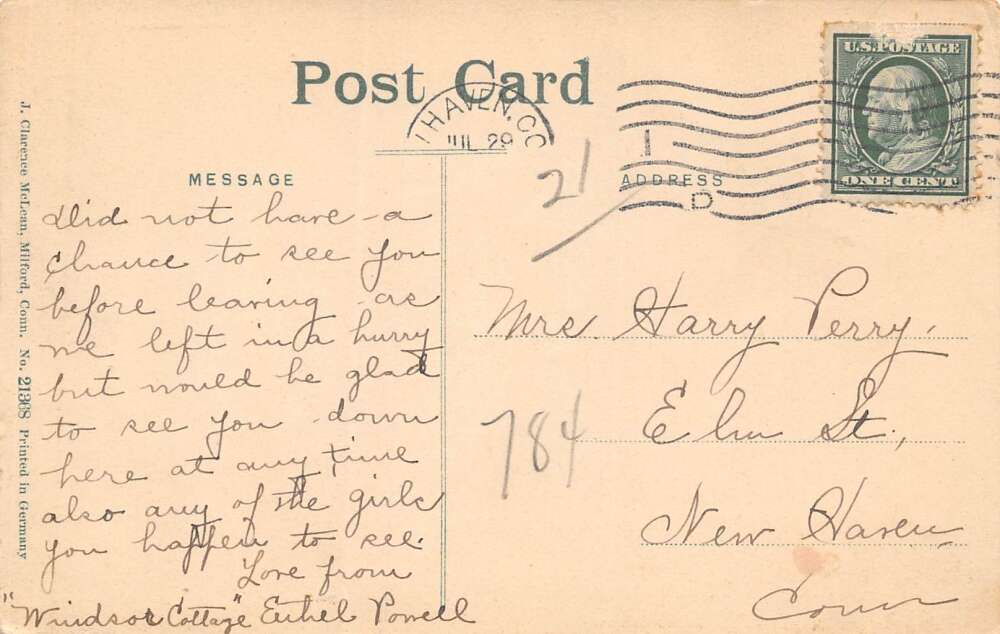 Post Card
HAVEN, CO
JUL 29
1
D
U.S. POSTAGE
ONE CENT
MESSAGE
ADDRESS
21
Did not have a
chance to see you
before leaving as
we left in a hurry
but would be glad
to see you down
here at any time
also any of the girls
you happen to see.
Love from
"Windsor Cottage" Ethel Powell
Mrs Harry Perry.
784
Elm St.,
New Haven
Conn
J. Clarence McLean, Milford, Conn. No. 21368 Printed in Germany